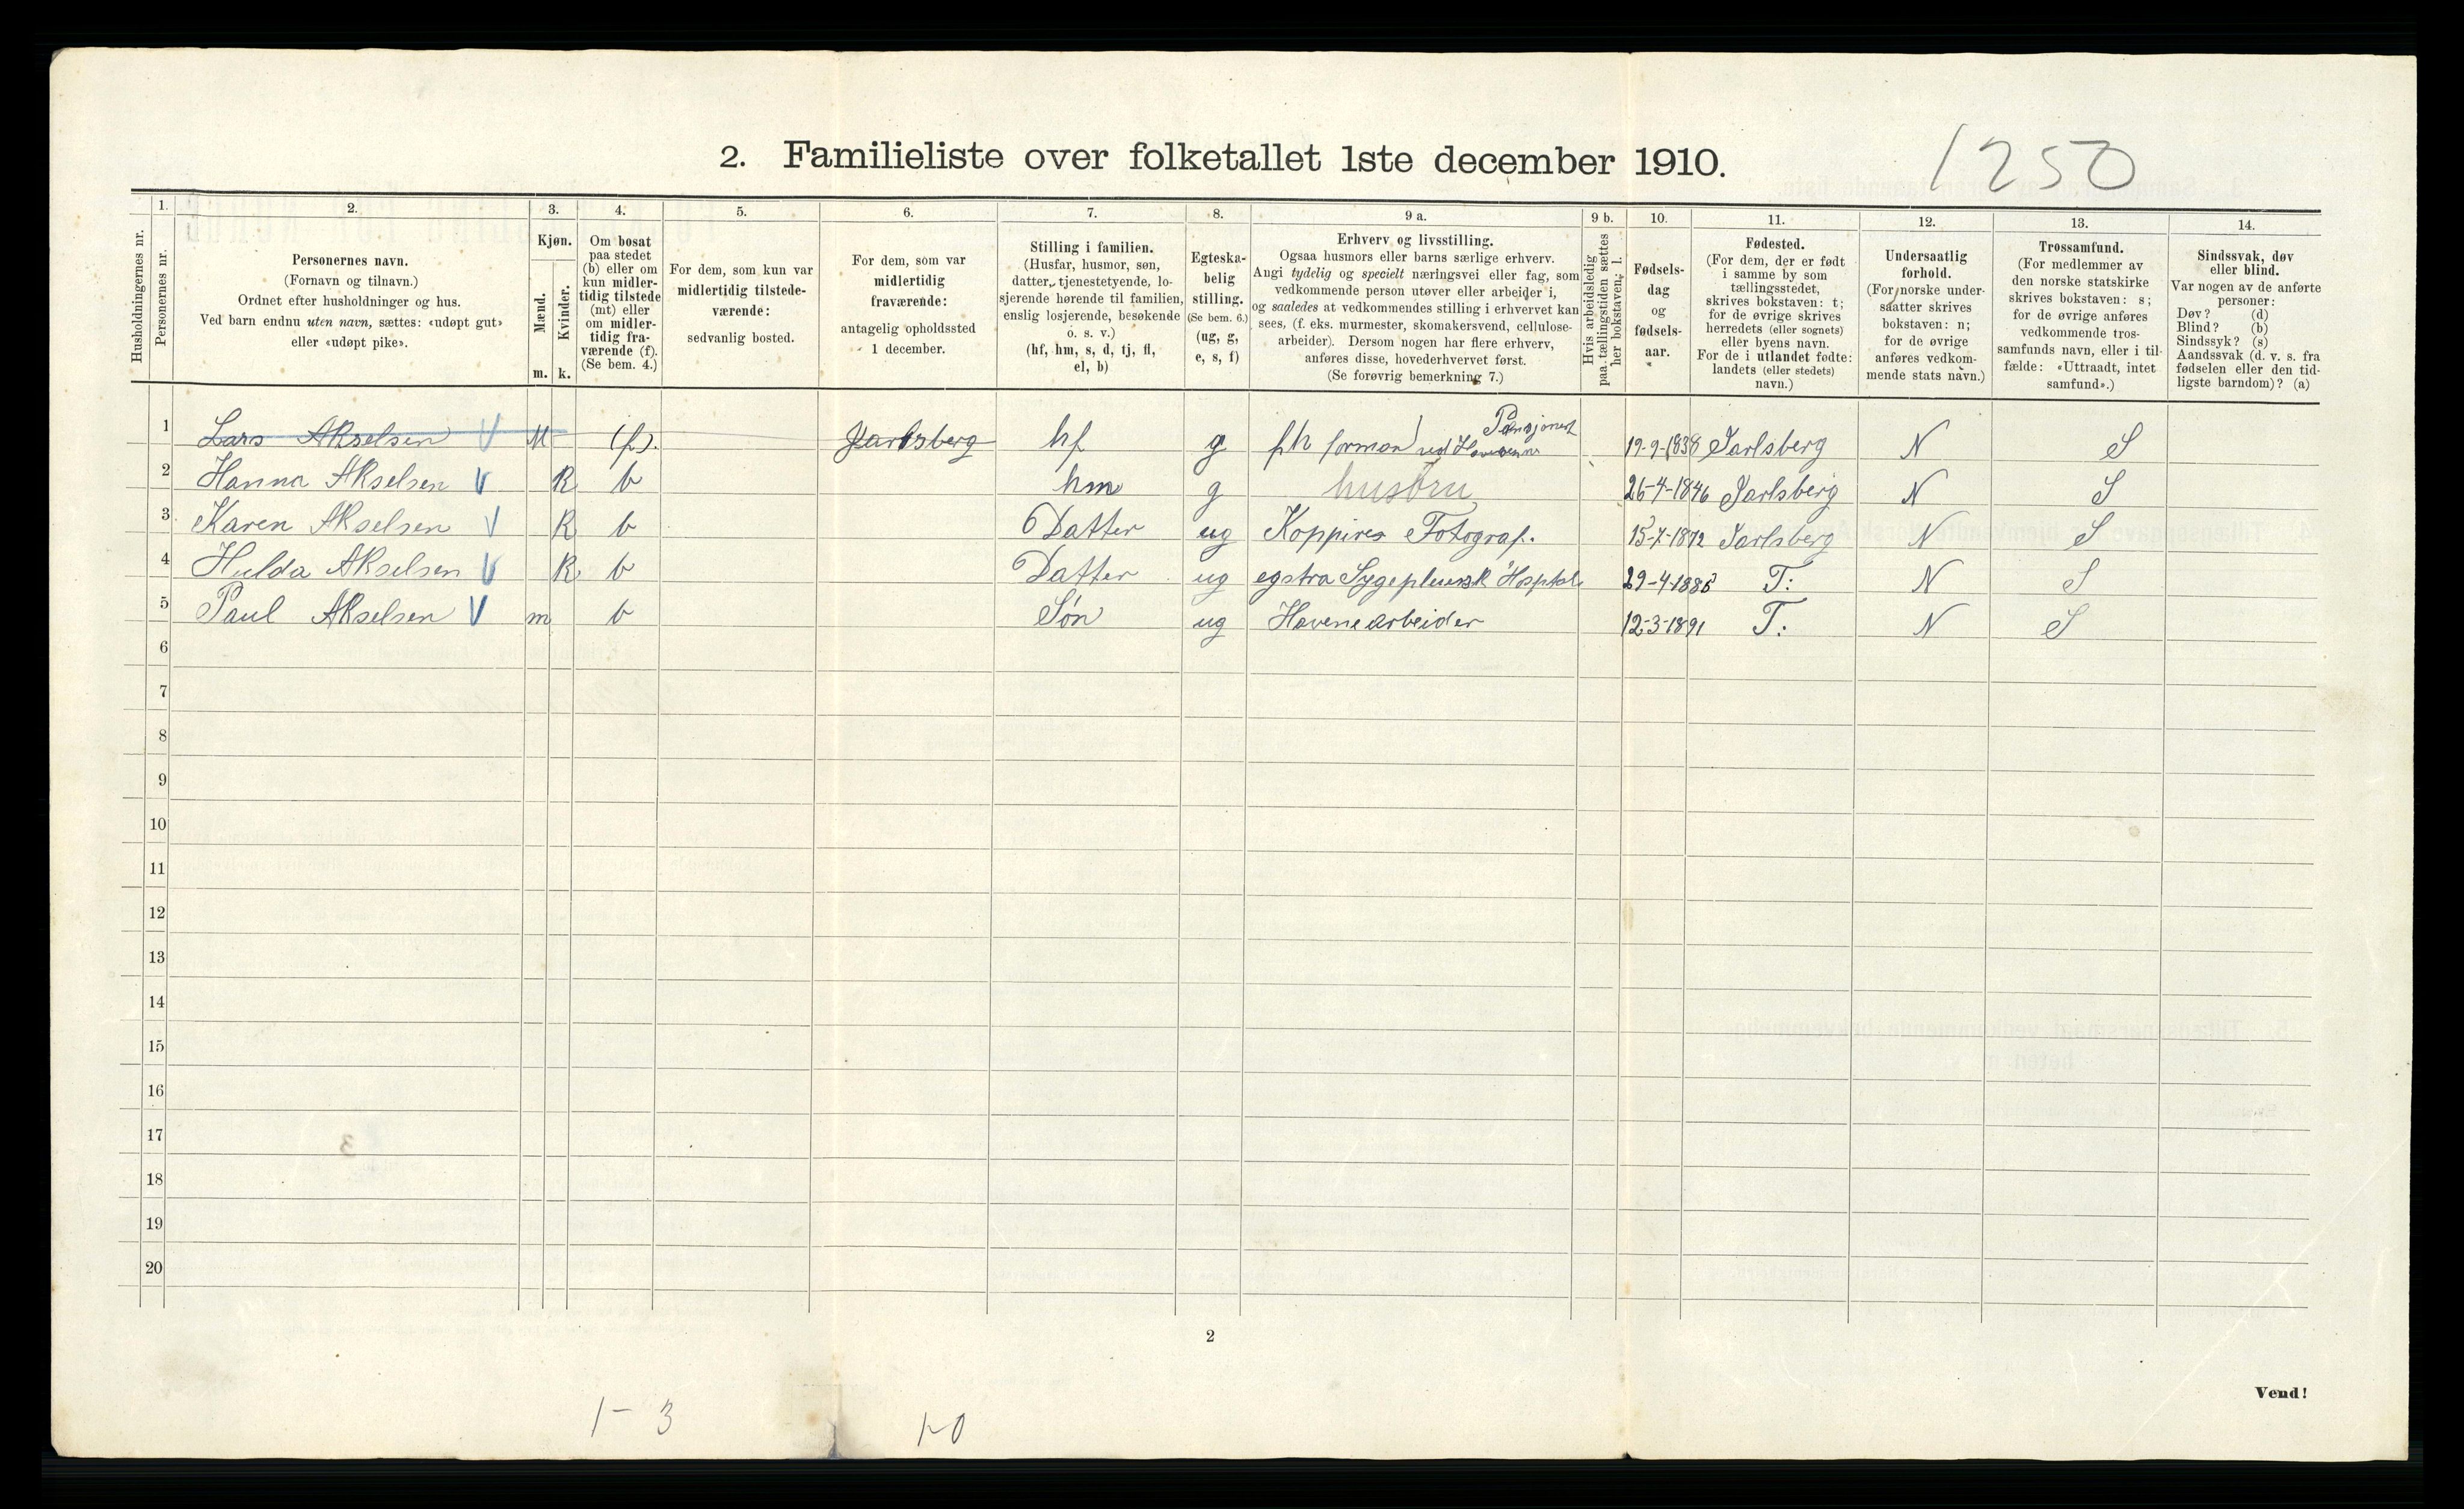 2. Familieliste over folketallet 1ste december 1910.
1250
Husholdningernes nr.
1.
Personernes nr.
2.
Personernes navn.
(Fornavn og tilnavn.)
Ordnet efter husholdninger og hus.
Ved barn endnu uten navn, sættes: «udøpt gut»
eller «udøpt pike».
3.
Kjøn.
Mænd.
m.
Kvinder.
k.
4.
Om bosat
paa stedet
(b) eller om
kun midler-
tidig tilstede
(mt) eller
om midler-
tidig fra-
værende (f).
(Se bem. 4.)
5.
For dem, som kun var
midlertidig tilstede-
værende:
sedvanlig bosted.
6.
For dem, som var
midlertidig
fraværende:
antagelig opholdssted
1 december.
7.
Stilling i familien.
(Husfar, husmor, søn,
datter, tjenestetyende, lo-
sjerende hørende til familien,
enslig losjerende, besøkende
o. s. v.)
(hf, hm, s, d, tj, fl,
el, b)
8.
Egteska-
belig
stilling.
(Se bem. 6.)
(ug, g,
e, s, f)
9 a.
Erhverv og livsstilling.
Ogsaa husmors eller barns særlige erhverv.
Angi tydelig og specielt næringsvei eller fag, som
vedkommende person utøver eller arbeider i,
og saaledes at vedkommendes stilling i erhvervet kan
sees, (f. eks. murmester, skomakersvend, cellulose-
arbeider). Dersom nogen har flere erhverv,
anføres disse, hovederhvervet først.
(Se forøvrig bemerkning 7.)
9 b.
Hvis arbeidsledig
paa tællingstiden sættes
her bokstaven: l.
10.
Fødsels-
dag
og
fødsels-
aar.
11.
Fødested.
(For dem, der er født
i samme by som
tællingsstedet,
skrives bokstaven: t;
for de øvrige skrives
herredets (eller sognets)
eller byens navn.
For de i utlandet fødte:
landets (eller stedets)
navn.)
12.
Undersaatlig
forhold.
(For norske under-
saatter skrives
bokstaven: n;
for de øvrige
anføres vedkom-
mende stats navn.)
13.
Trossamfund.
(For medlemmer av
den norske statskirke
skrives bokstaven: s;
for de øvrige anføres
vedkommende tros-
samfunds navn, eller i til-
fælde: «Uttraadt, intet
samfund».)
14.
Sindssvak, døv
eller blind.
Var nogen av de anførte
personer:
Døv? (d)
Blind? (b)
Sindssyk? (s)
Aandssvak (d. v. s. fra
fødselen eller den tid-
ligste barndom)? (a)
1 Lars Akselsen V M (f). Jarlsberg hf g fh forman ved Pensjonert 19-9-1838 Jarlsberg N S
2 Hanna Akselsen V K b hm g husbru 26-4-1846 Jarlsberg N S
3 Karen Akselsen V K b Datter ug Koppires Fotograf. 15-7-1872 Jarlsberg N S
4 Hulda Akselsen V K b Datter ug egstra 29-4-1885 T: N S
5 Paul Akselsen V m b Søn ug Havenearbeider 12-3-1891 T: N S
6
7
8
9
10
11
12
13
14
15
16
17
18
19
20
2
Vend!
1-3
1-0